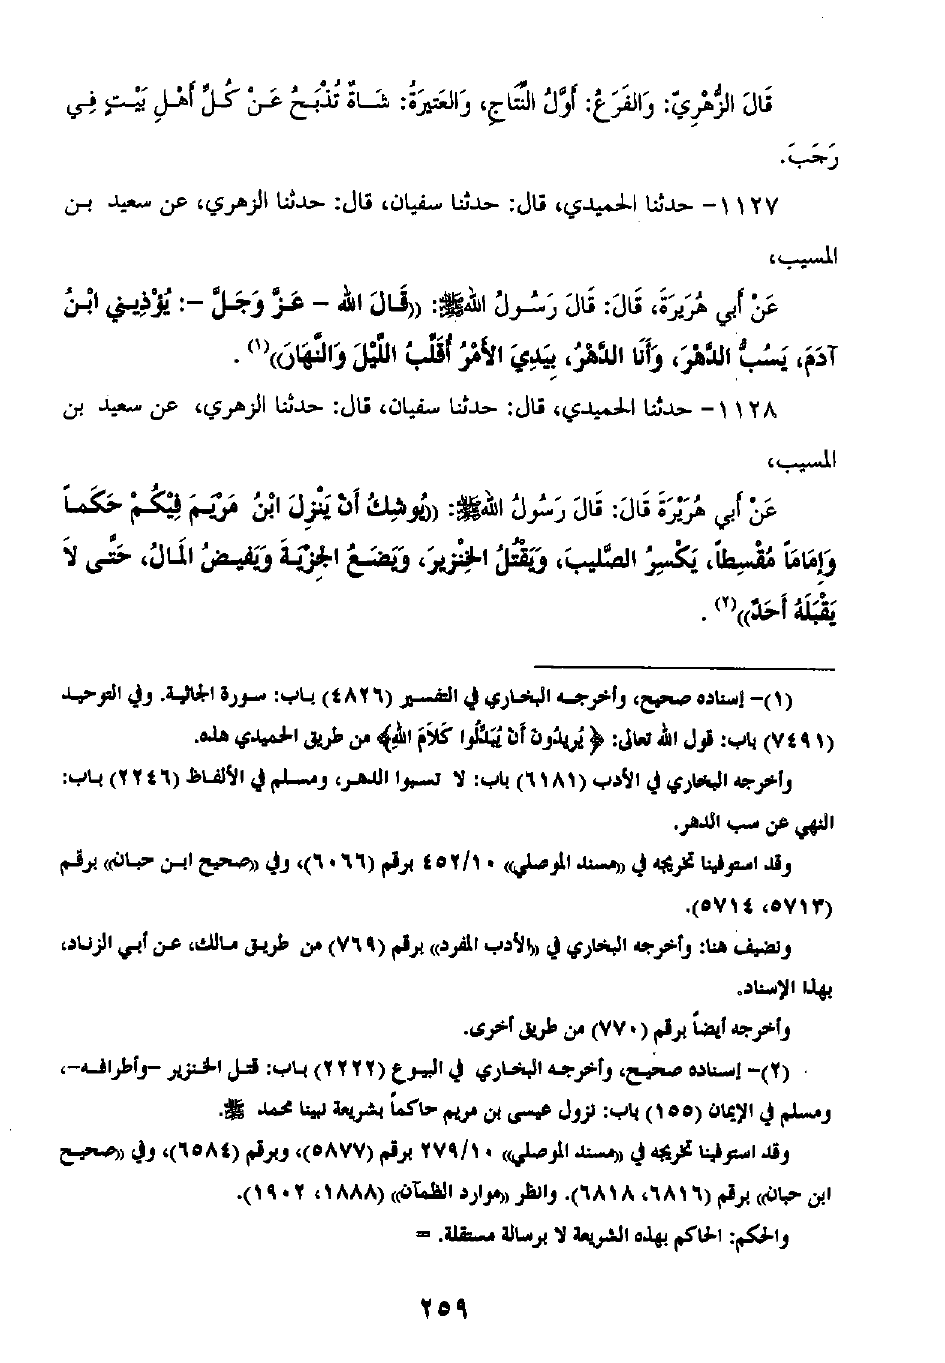 قَالَ الزُّهْرِيّ: وَالفَرَعُ: أَوَّلُ النَّتَاجِ، وَالعَتِيرَةُ: شَاةٌ تُذْبَحُ عَنْ كُلِّ أَهْلِ بَيْتٍ فِي
رَجَبَ.
١١٢٧- حدثنا الحميدي، قال: حدثنا سفيان، قال: حدثنا الزهري، عن سعيد بن
المسيب،
عَنْ أَبي هُرَيرَةَ، قَالَ: قَالَ رَسُولُ اللهِ ﷺ: ((قَالَ الله - عَزَّ وَجَلَّ -: يُؤْذِيني ابْنُ
آدَمَ، يَسُبُّ الدَّهْرَ، وَأَنَا الدَّهْرُ، بِيَدِيَ الأَمْرُ أُقَلِّبُ اللَّيْلَ وَالنَّهَارَ))(١) .
١١٢٨- حدثنا الحميدي، قال: حدثنا سفيان، قال: حدثنا الزهري، عن سعيد بن
المسيب،
عَنْ أَبي هُرَيْرَةَ قَالَ: قَالَ رَسُولُ اللهِ ﷺ: ((يُوشِكُ أَنْ يَنْزِلَ ابْنُ مَرْيَمَ فِيكُمْ حَكَماً
وَإِمَاماً مُقْسِطاً، يَكْسِرُ الصَّلِيبَ، وَيَقْتُلُ الخِنْزِيرَ، وَيَضَعُ الجِزْيَةَ وَيَفيضُ المَالُ، حَتَّى لاَ
يَقْبَلَهُ أَحَدٌ))(٢) .
(١)- إسناده صحيح، وأخرجه البخاري في التفسير (٤٨٢٦) باب: سورة الجاثية. وفي التوحيد
(٧٤٩١) باب: قول الله تعالى: ﴿ يُرِيدُونَ أَنْ يُبَدِّلُوا كَلاَمَ اللهِ﴾ من طريق الحميدي هذه.
وأخرجه البخاري في الأدب (٦١٨١) باب: لا تسبوا الدهر، ومسلم في الألفاظ (٢٢٤٦) باب:
النهي عن سب الدهر.
وقد استوفينا تخريجه في ((مسند الموصلي)) ٤٥٢/١٠ برقم (٦٠٦٦)، وفي ((صحيح ابن حبان)) برقم
(٥٧١٣، ٥٧١٤).
ونضيف هنا: وأخرجه البخاري في ((الأدب المفرد)) برقم (٧٦٩) من طريق مالك، عن أبي الزناد،
بهذا الإسناد.
وأخرجه أيضاً برقم (٧٧٠) من طريق أخرى.
(٢)- إسناده صحيح، وأخرجه البخاري في البيوع (٢٢٢٢) باب: قتل الخنزير -وأطرافه-،
ومسلم في الإيمان (١٥٥) باب: نزول عيسى بن مريم حاكماً بشريعة نبينا محمد ﷺ.
وقد استوفينا تخريجه في ((مسند الموصلي)) ٢٧٩/١٠ برقم (٥٨٧٧)، وبرقم (٦٥٨٤)، وفي ((صحيح
ابن حبان)) برقم (٦٨١٦، ٦٨١٨). وانظر ((موارد الظمآن)) (١٨٨٨، ١٩٠٢).
والحكم: الحاكم بهذه الشريعة لا برسالة مستقلة. =
٢٥٩